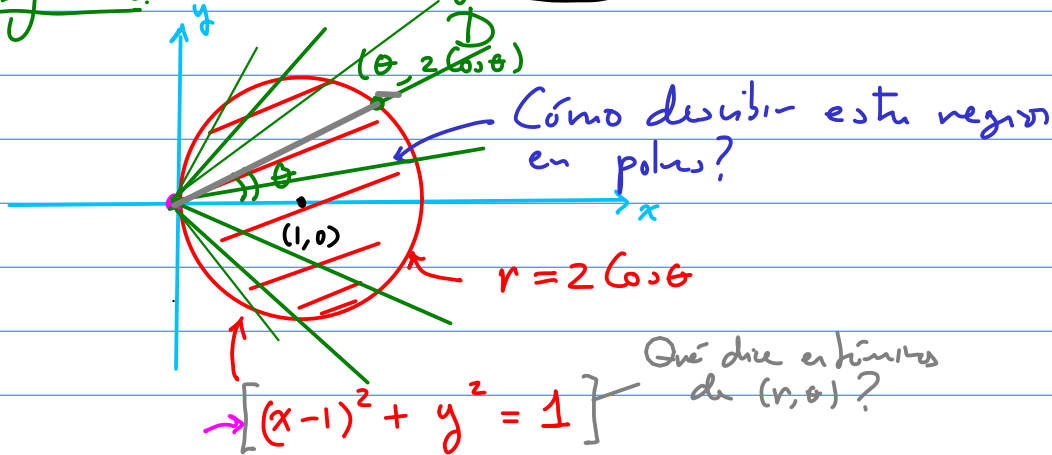 y
D
(θ, 2 Cos θ)
Cómo describir esta region
en polares?
θ
x
(1,0)
r = 2 Cos θ
Qué dice en términos
de (r,θ)?
[(x-1)² + y² = 1]